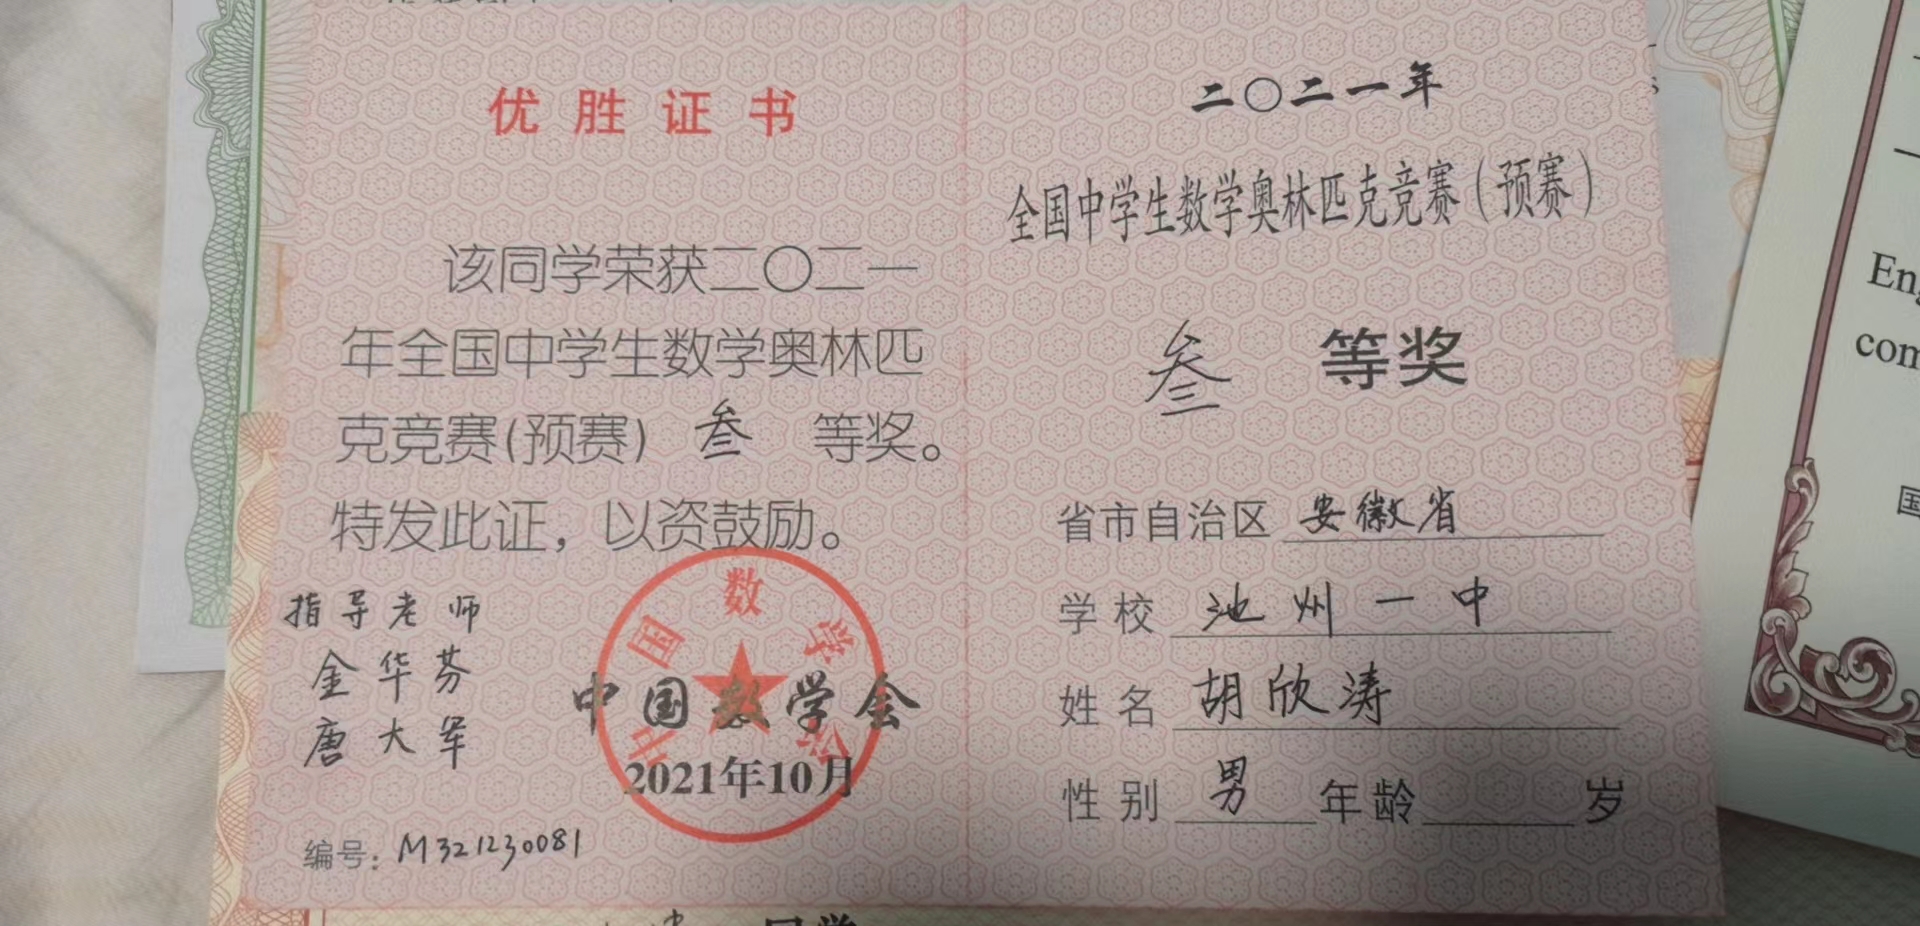 优胜证书
该同学荣获二〇二一
年全国中学生数学奥林匹
克竞赛(预赛) 叁 等奖。
特发此证，以资鼓励。
指导老师
金华芬
唐大军
中国数学会
中国数学会
2021年10月
编号：M321230081
二〇二一年
全国中学生数学奥林匹克竞赛（预赛）
叁 等奖
省市自治区 安徽省
学校 池州一中
姓名 胡欣涛
性别 男 年龄 岁
Eng
com
国